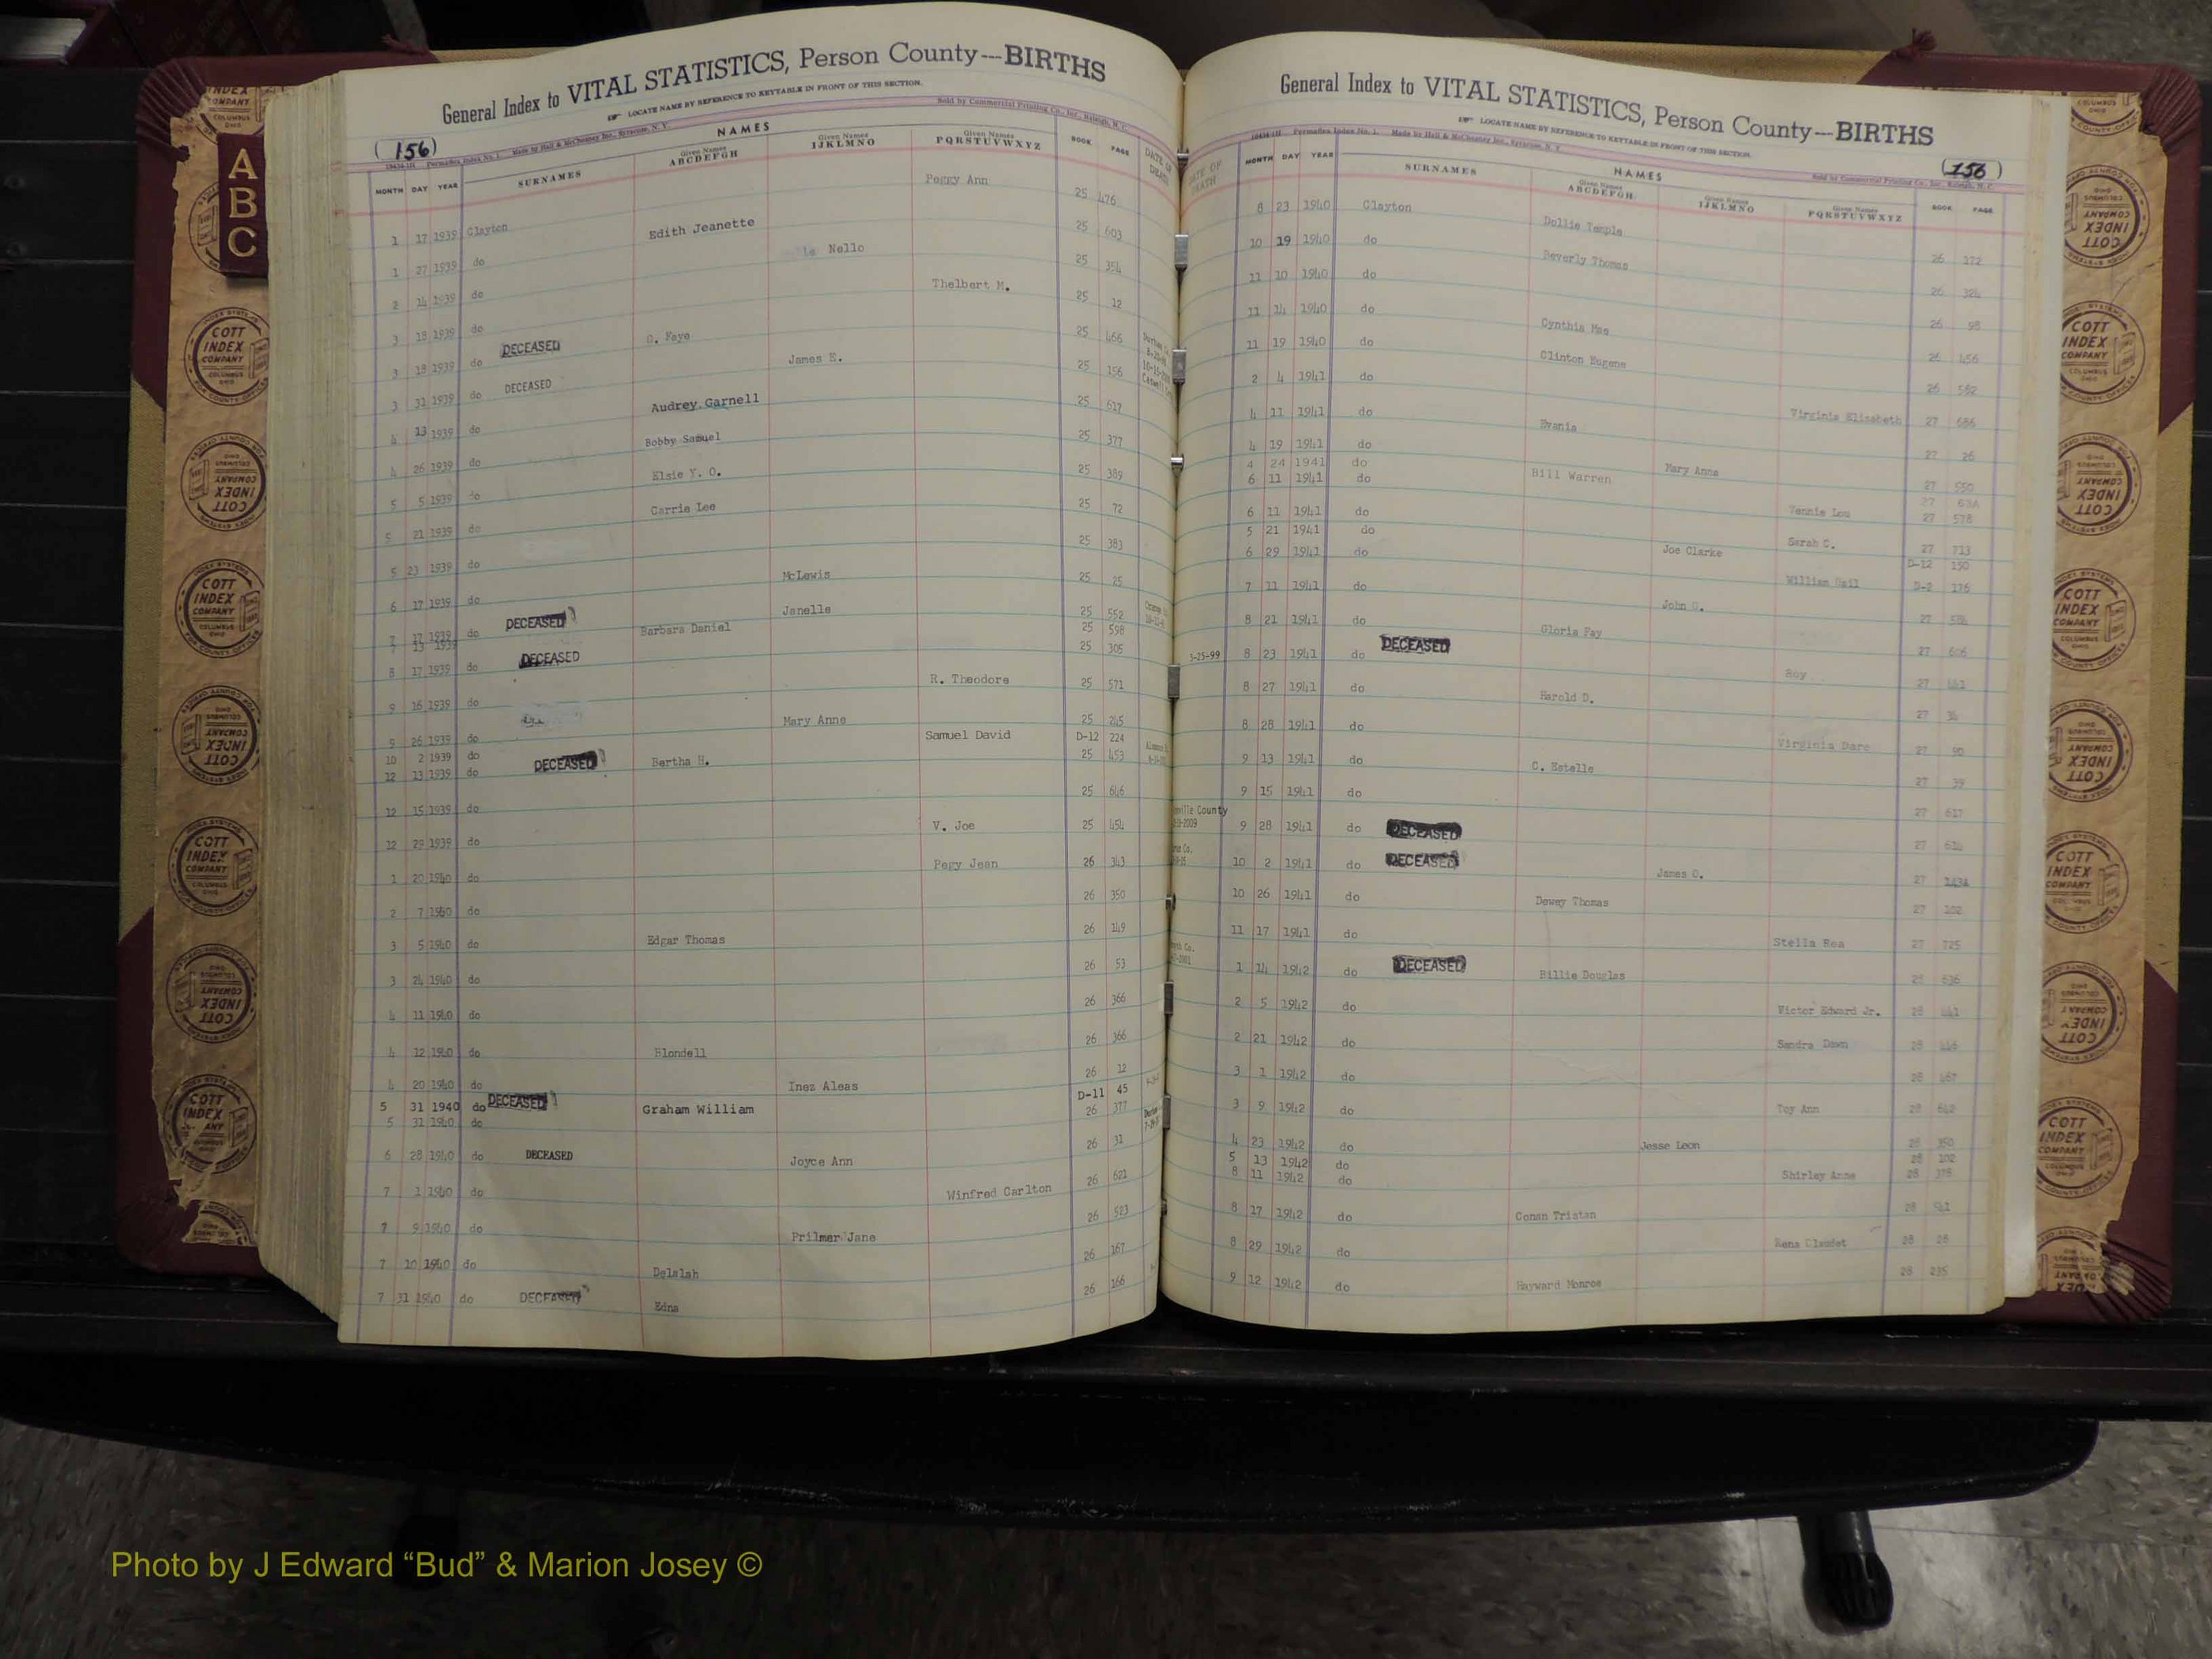 General Index to VITAL STATISTICS, Person County---BIRTHS
LOCATE NAME BY REFERENCE TO KEYTABLE IN FRONT OF THIS SECTION.
Sold by Commercial Printing Co., Inc., Raleigh, N. C.
(156)
NAMES
MONTH DAY YEAR SURNAMES Given Names ABCDEFGH Given Names IJKLMNO Given Names PQRSTUVWXYZ BOOK PAGE DATE OF DEATH
1 17 1939 Clayton Peggy Ann 25 476
1 27 1939 do Edith Jeanette 25 603
2 14 1939 do Nello 25 354
3 18 1939 do Thelbert M. 25 12
3 18 1939 do DECEASED O. Faye 25 466
3 31 1939 do DECEASED James E. 25 156
4 13 1939 do Audrey Garnell 25 617
4 26 1939 do Bobby Samuel 25 377
5 5 1939 do Elsie Y. O. 25 389
5 21 1939 do Carrie Lee 25 72
5 23 1939 do 25 383
6 17 1939 do McLewis 25 25
7 12 1939 do DECEASED Janelle 25 552
7 13 1939 Barbara Daniel 25 598
8 17 1939 do DECEASED 25 305
9 16 1939 do R. Theodore 25 571
9 26 1939 do Mary Anne 25 245
10 2 1939 do Samuel David D-12 224
12 13 1939 do DECEASED Bertha H. 25 453
12 15 1939 do 25 646
12 29 1939 do V. Joe 25 454
1 20 1940 do Pegy Jean 26 343
2 7 1940 do 26 350
3 5 1940 do Edgar Thomas 26 149
3 24 1940 do 26 53
4 11 1940 do 26 366
4 12 1940 do Blondell 26 366
4 20 1940 do Inez Aleas 26 12
5 31 1940 do DECEASED Graham William D-11 45
5 31 1940 do 26 377
6 28 1940 do DECEASED Joyce Ann 26 31
7 1 1940 do Winfred Carlton 26 621
7 9 1940 do Prilmer Jane 26 523
7 10 1940 do Delalah 26 167
7 31 1940 do DECEASED Edna 26 166
General Index to VITAL STATISTICS, Person County---BIRTHS
LOCATE NAME BY REFERENCE TO KEYTABLE IN FRONT OF THIS SECTION.
(156)
NAMES
DATE OF DEATH MONTH DAY YEAR SURNAMES Given Names ABCDEFGH Given Names IJKLMNO Given Names PQRSTUVWXYZ BOOK PAGE
8 23 1940 Clayton Dollie Temple 26 172
10 19 1940 do Beverly Thomas 26 324
11 10 1940 do 26 98
11 14 1940 do Cynthia Mae 26 456
11 19 1940 do Clinton Eugene 26 582
2 4 1941 do Virginia Elizabeth 27 686
4 11 1941 do Evania 27 26
4 19 1941 do Mary Anne 27 550
4 24 1941 do Bill Warren 27
6 11 1941 do Tennie Lou 27 578
6 11 1941 do Sarah C. 27 713
5 21 1941 do Joe Clarke D-12 150
6 29 1941 do William D-2 176
7 11 1941 do John O. 27
8 21 1941 do Gloria Fay 27 606
3-25-99 8 23 1941 do DECEASED Roy 27
8 27 1941 do Harold D. 27
8 28 1941 do Virginia Dare 27 90
9 13 1941 do C. Estelle 27 39
9 15 1941 do 27 617
9 28 1941 do DECEASED 27
10 2 1941 do DECEASED James O. 27
10 26 1941 do Dewey Thomas 27 102
11 17 1941 do Stella Rea 27 725
1 14 1942 do DECEASED Billie Douglas 28 636
2 5 1942 do Victor Edward Jr. 28
2 21 1942 do Sandra Dawn 28
3 1 1942 do 28 467
3 9 1942 do Toy Ann 28 642
4 23 1942 do Jesse Leon 28 350
5 13 1942 do 28 102
8 11 1942 do Shirley Anne 28
8 17 1942 do Conan Tristan 28 541
8 29 1942 do Rena Claudet 28 28
9 12 1942 do Hayward Monroe 28 235
A
B
C
COTT INDEX COMPANY COLUMBUS OHIO
Photo by J Edward “Bud” & Marion Josey ©